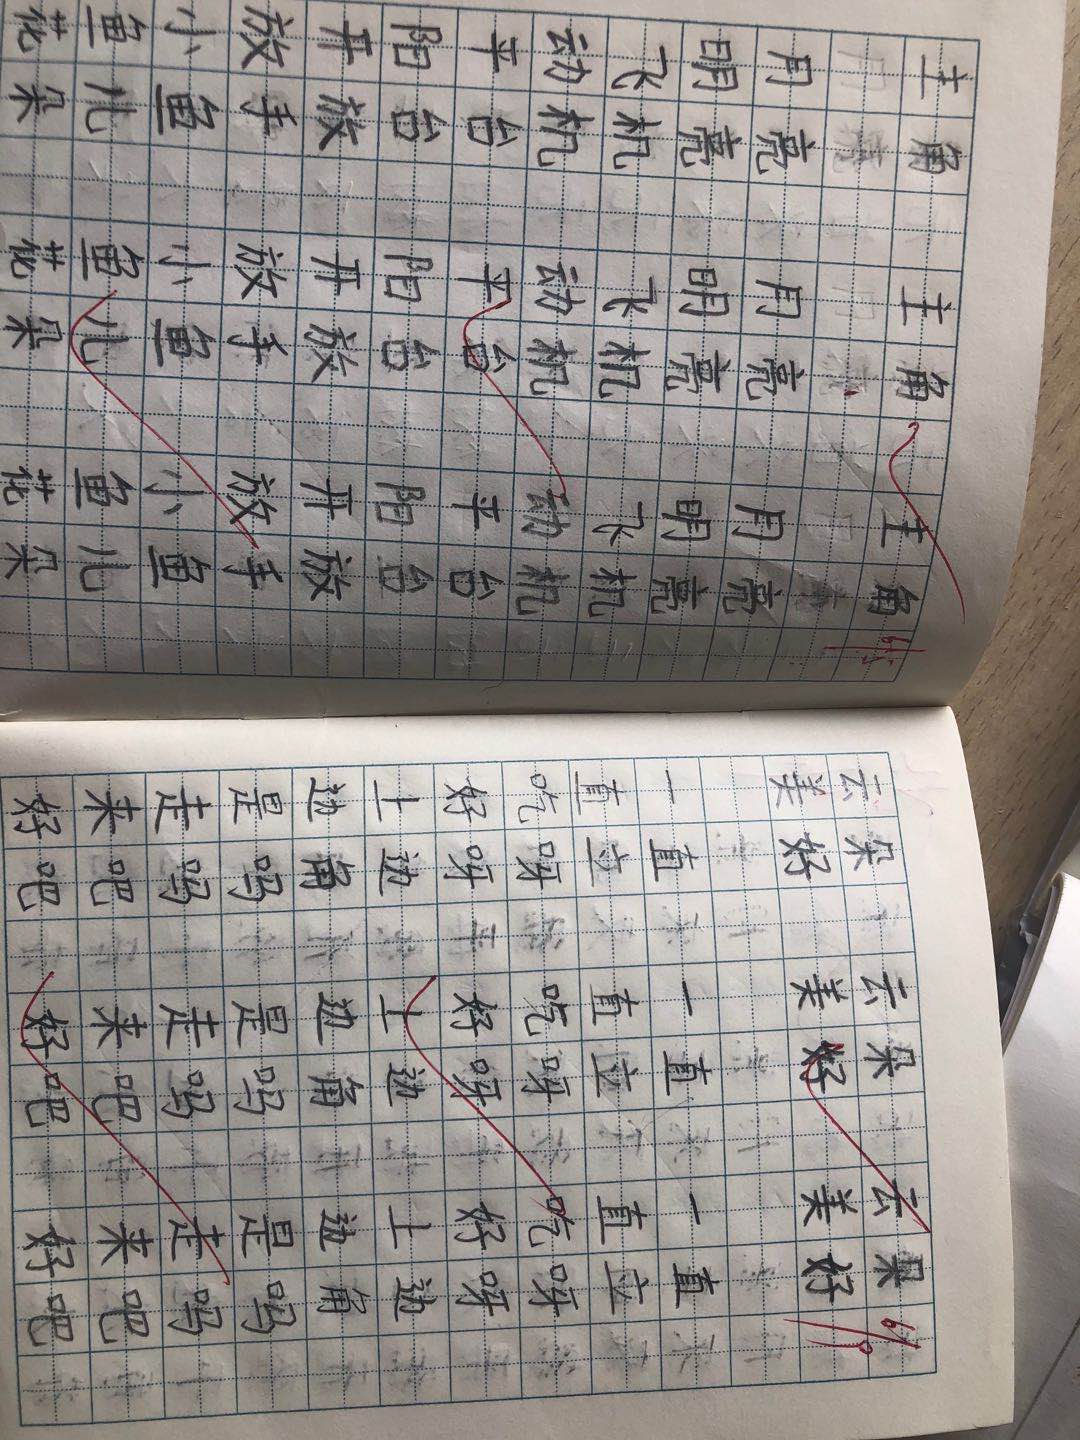 主角 主角 主角
月亮 月亮 月亮
明亮 明亮 明亮
飞机 飞机 飞机
动机 动机 动机
平台 平台 平台
阳台 阳台 阳台
开放 开放 开放
放手 放手 放手
小鱼 小鱼 小鱼
鱼儿 鱼儿 鱼儿
花朵 花朵 花朵
云朵 云朵 云朵
美好 美好 美好
一直 一直 一直
直立 直立 直立
吃呀 吃呀 吃呀
好呀 好呀 好呀
上边 上边 上边
边角 边角 边角
是吗 是吗 是吗
走吗 走吗 走吗
来吧 来吧 来吧
好吧 好吧 好吧